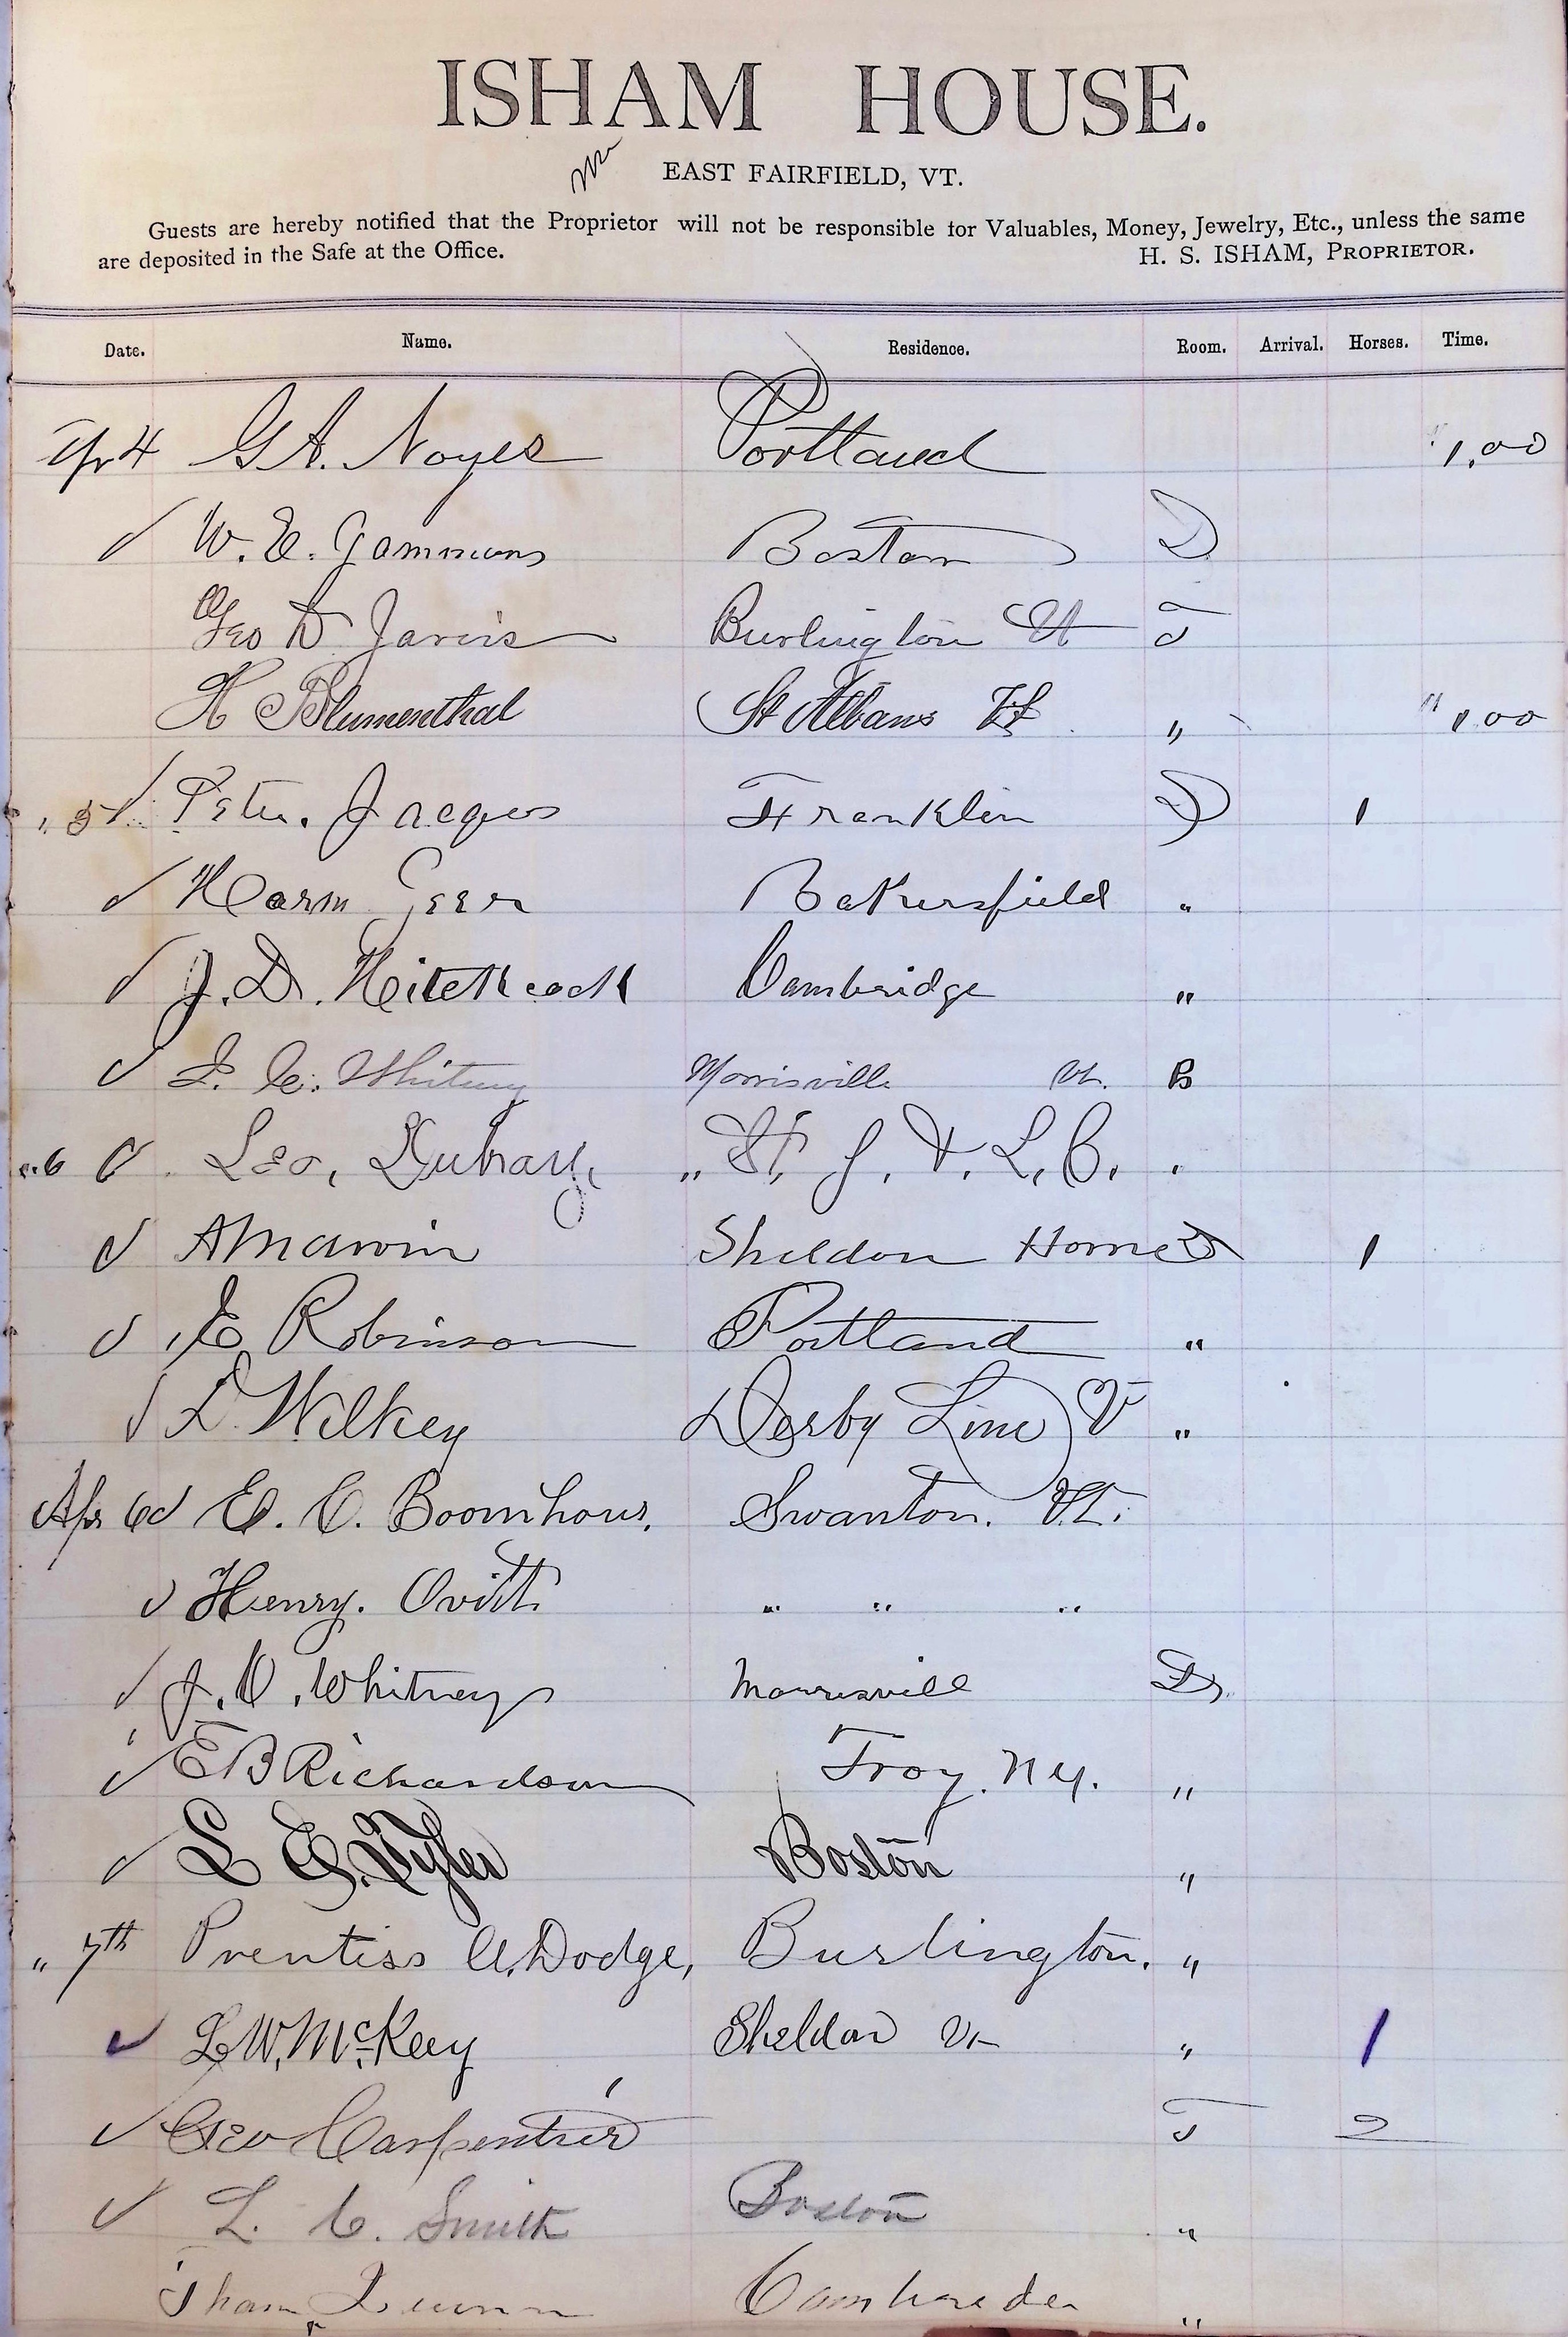 ISHAM HOUSE.
EAST FAIRFIELD, VT.
Guests are hereby notified that the Proprietor will not be responsible for Valuables, Money, Jewelry, Etc., unless the same
are deposited in the Safe at the Office. H. S. ISHAM, PROPRIETOR.
Date. Name. Residence. Room. Arrival. Horses. Time.
Apr 4 G A. Noyes Portland 1.00
✓ W. E. Gammons Boston D
Geo D Jarvis Burlington Vt
H Blumenthal St Albans Vt " " 1.00
" 5 ✓ Peter. Jacques Franklin D 1
✓ Harm Geer Bakersfield "
✓ J. D. Hitchcock Cambridge "
✓ J. C. Whitney Morrisville Vt. B
" 6 ✓ Leo, Dubray, " St, J. & L. C. "
✓ A Marvin Sheldon Home D 1
✓ E Robinson Portland "
✓ Wilkey Derby Line Vt "
Apr 6 ✓ E. C. Boomhour. Swanton. Vt.
✓ Henry. Ovitt " " "
✓ J. C. Whitney Morrisvill D
✓ E B Richardson Troy. N Y. "
✓ L E. Tyler Boston "
" 7th Prentiss C. Dodge, Burlington. "
✓ L W. McKeey Sheldon Vt " 1
✓ Geo Carpentier 2
✓ L. C. Smith Boston "
"